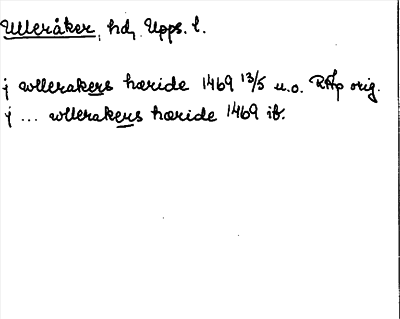 Ulleråker, hd, Upps. l.
j wllerakers hæride 1469 13/5 u.o. RAp orig.
j ... wllerakers hæride 1469 ib.